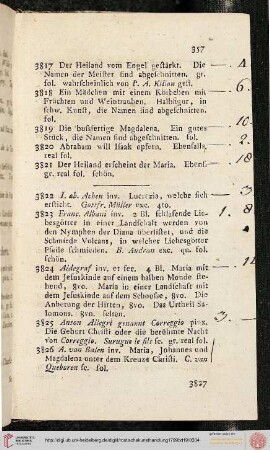 357
3817 Der Heiland vom Engel gestärkt. Die
Namen der Meister sind abgeschnitten. gr.
fol. wahrscheinlich von P. A. Kilian gest.
4.
3818 Ein Mädchen mit einem Körbchen mit
Früchten und Weintrauben. Halbfigur, in
schw. Kunst, die Namen sind abgeschnitten.
fol.
6.
3819 Die bussfertige Magdalena. Ein gutes
Stück, die Namen sind abgeschnitten. fol.
10.
3820 Abraham will Isaak opfern. Ebenfalls,
real fol.
2.
3821 Der Heiland erscheint der Maria. Ebenf.
gr. real fol. schön.
18
3822 I. ab. Achen inv. Lucrezia, welche sich
ersticht. Gottfr. Müller exc. 4to.
3
3823 Franc. Albani inv. 2 Bl. schlafende Lie-
besgötter in einer Landschaft werden von
den Nymphen der Diana überlistet, und die
Schmiede Volcans, in welcher Liebesgötter
Pfeile schmieden. B. Audran exc. qu. fol.
schön.
1. 8
3824 Aldegraf inv. et fec. 4 Bl. Maria mit
dem Jesuskinde auf einem halben Monde ste-
hend, 8vo. Maria in einer Landschaft mit
dem Jesuskinde auf dem Schoosse, 8vo. Die
Anbetung der Hirten, 8vo. Das Urtheil Sa-
lomons. 8vo. selten.
3825 Anton Allegri genannt Correggio pinx.
Die Geburt Christi oder die berühmte Nacht
von Correggio. Surugue le fils sc. gr. real fol.
3
3826 A. van Balen inv. Maria, Johannes und
Magdalena unter dem Kreuze Christi. C. van
Queboren sc. fol.
3827